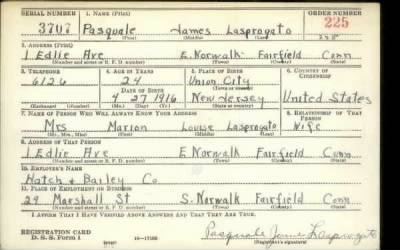 SERIAL NUMBER 1. NAME (Print) ORDER NUMBER
3707 Pasquale James Lasprogato 225
(First) (Middle) (Last) 225
2. ADDRESS (Print)
1 Edlie Ave E. Norwalk Fairfield Conn
(Number and street or R. F. D. number) (Town) (County) (State)
3. TELEPHONE 4. AGE IN YEARS 5. PLACE OF BIRTH 6. COUNTRY OF CITIZENSHIP
6126 24 Union City
DATE OF BIRTH (Town or county)
4 27 1916 New Jersey United States
(Exchange) (Number) (Mo.) (Day) (Yr.) (State or country)
7. NAME OF PERSON WHO WILL ALWAYS KNOW YOUR ADDRESS 8. RELATIONSHIP OF THAT PERSON
Mrs Marion Louise Lasprogato Wife
(Mr., Mrs., Miss) (First) (Middle) (Last)
9. ADDRESS OF THAT PERSON
1 Edlie Ave E Norwalk Fairfield Conn
(Number and street or R. F. D. number) (Town) (County) (State)
10. EMPLOYER'S NAME
Hatch & Bailey Co
11. PLACE OF EMPLOYMENT OR BUSINESS
29 Marshall St S. Norwalk Fairfield Conn
(Number and street or R. F. D. number) (Town) (County) (State)
I AFFIRM THAT I HAVE VERIFIED ABOVE ANSWERS AND THAT THEY ARE TRUE.
REGISTRATION CARD Pasquale James Lasprogato
D. S. S. Form 1 (Registrant's signature)